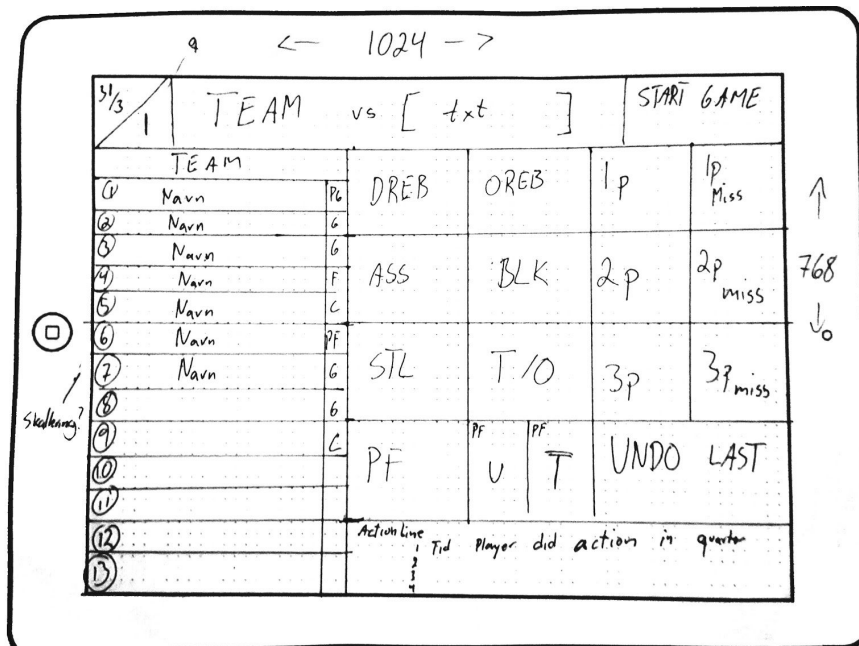 9
<— 1024 —>
31/3
1
TEAM vs [ txt ]
START GAME
TEAM
1 Navn PG
2 Navn G
3 Navn G
4 Navn F
5 Navn C
6 Navn PF
7 Navn G
8 G
9 C
10
11
12
13
DREB OREB 1p 1p Miss
ASS BLK 2p 2p miss
STL T/O 3p 3p miss
PF PF U PF T UNDO LAST
Action Line
1 Tid Player did action in quarter
2
3
4
768
Skallering?